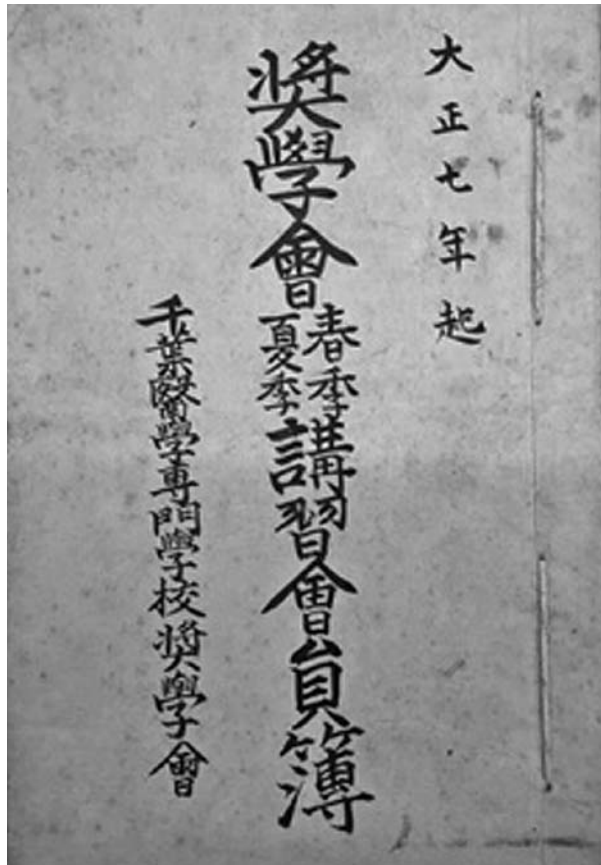 大正七年起
奬學會春季夏季講習會員簿
千葉醫學専門學校奬學會